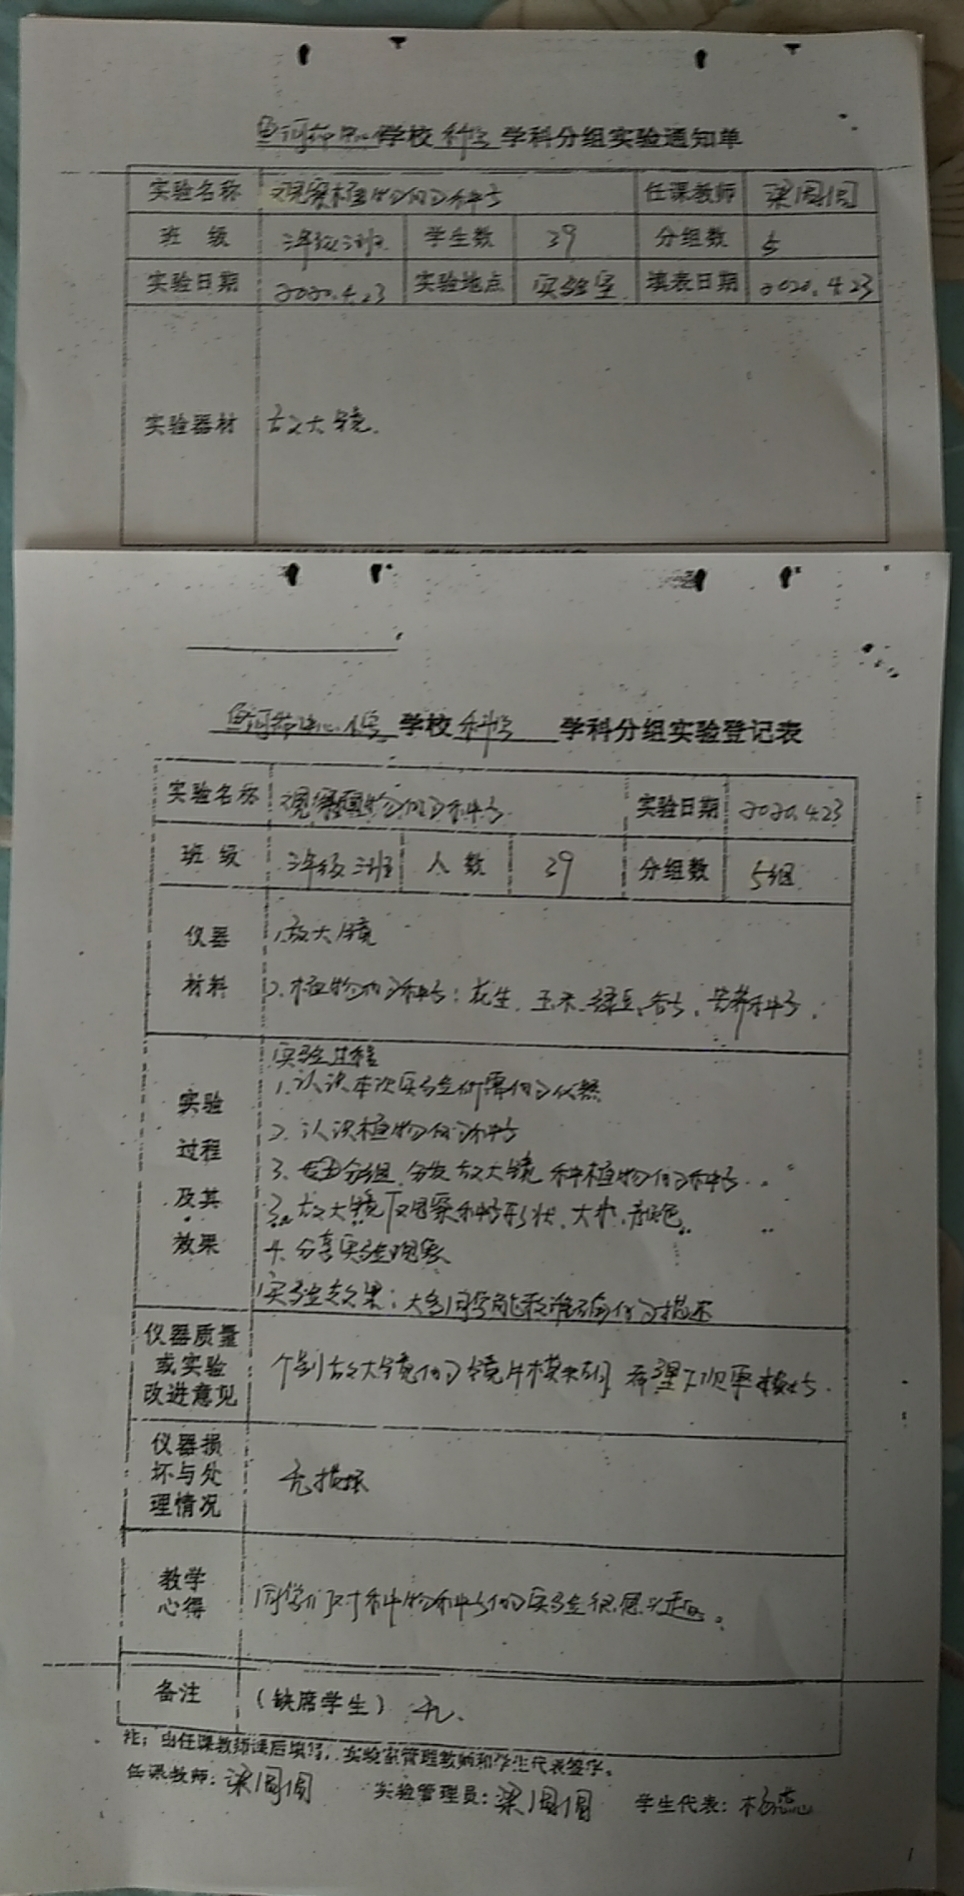 鱼河峁中心学校 科学 学科分组实验通知单
实验名称 观察植物的种子 任课教师 梁圆圆
班 级 三年级三班 学生数 39 分组数 5
实验日期 2020.4.23 实验地点 实验室 填表日期 2020.4.23
实验器材 放大镜.
学校 科学 学科分组实验登记表
实验名称 观察植物的种子 实验日期 2020.4.23
班 级 三年级 三班 人 数 39 分组数 5组
仪器 1.放大镜
材料 2.植物的种子:花生、玉米、绿豆、
实验过程
1.认识本次实验所需的仪器
实验
2.认识植物的种子
过程
3. 分组,分发放大镜 种植物的种子.
及其 3.放大镜下观察种子形状、大小、颜色
效果 4.分享实验现象
实验效果:大多同学能较准确的描述
仪器质量
或实验 个别放大镜的镜片模糊 希望下次更换
改进意见
仪器损
坏与处 无损坏
理情况
教学
心得 同学们对种物种子的实验很感兴趣。
备注 (缺席学生) 无、
注:由任课教师课后填写,实验室管理教师和学生代表签字。
任课教师:梁圆圆 实验管理员:梁圆圆 学生代表:杨蕊
1